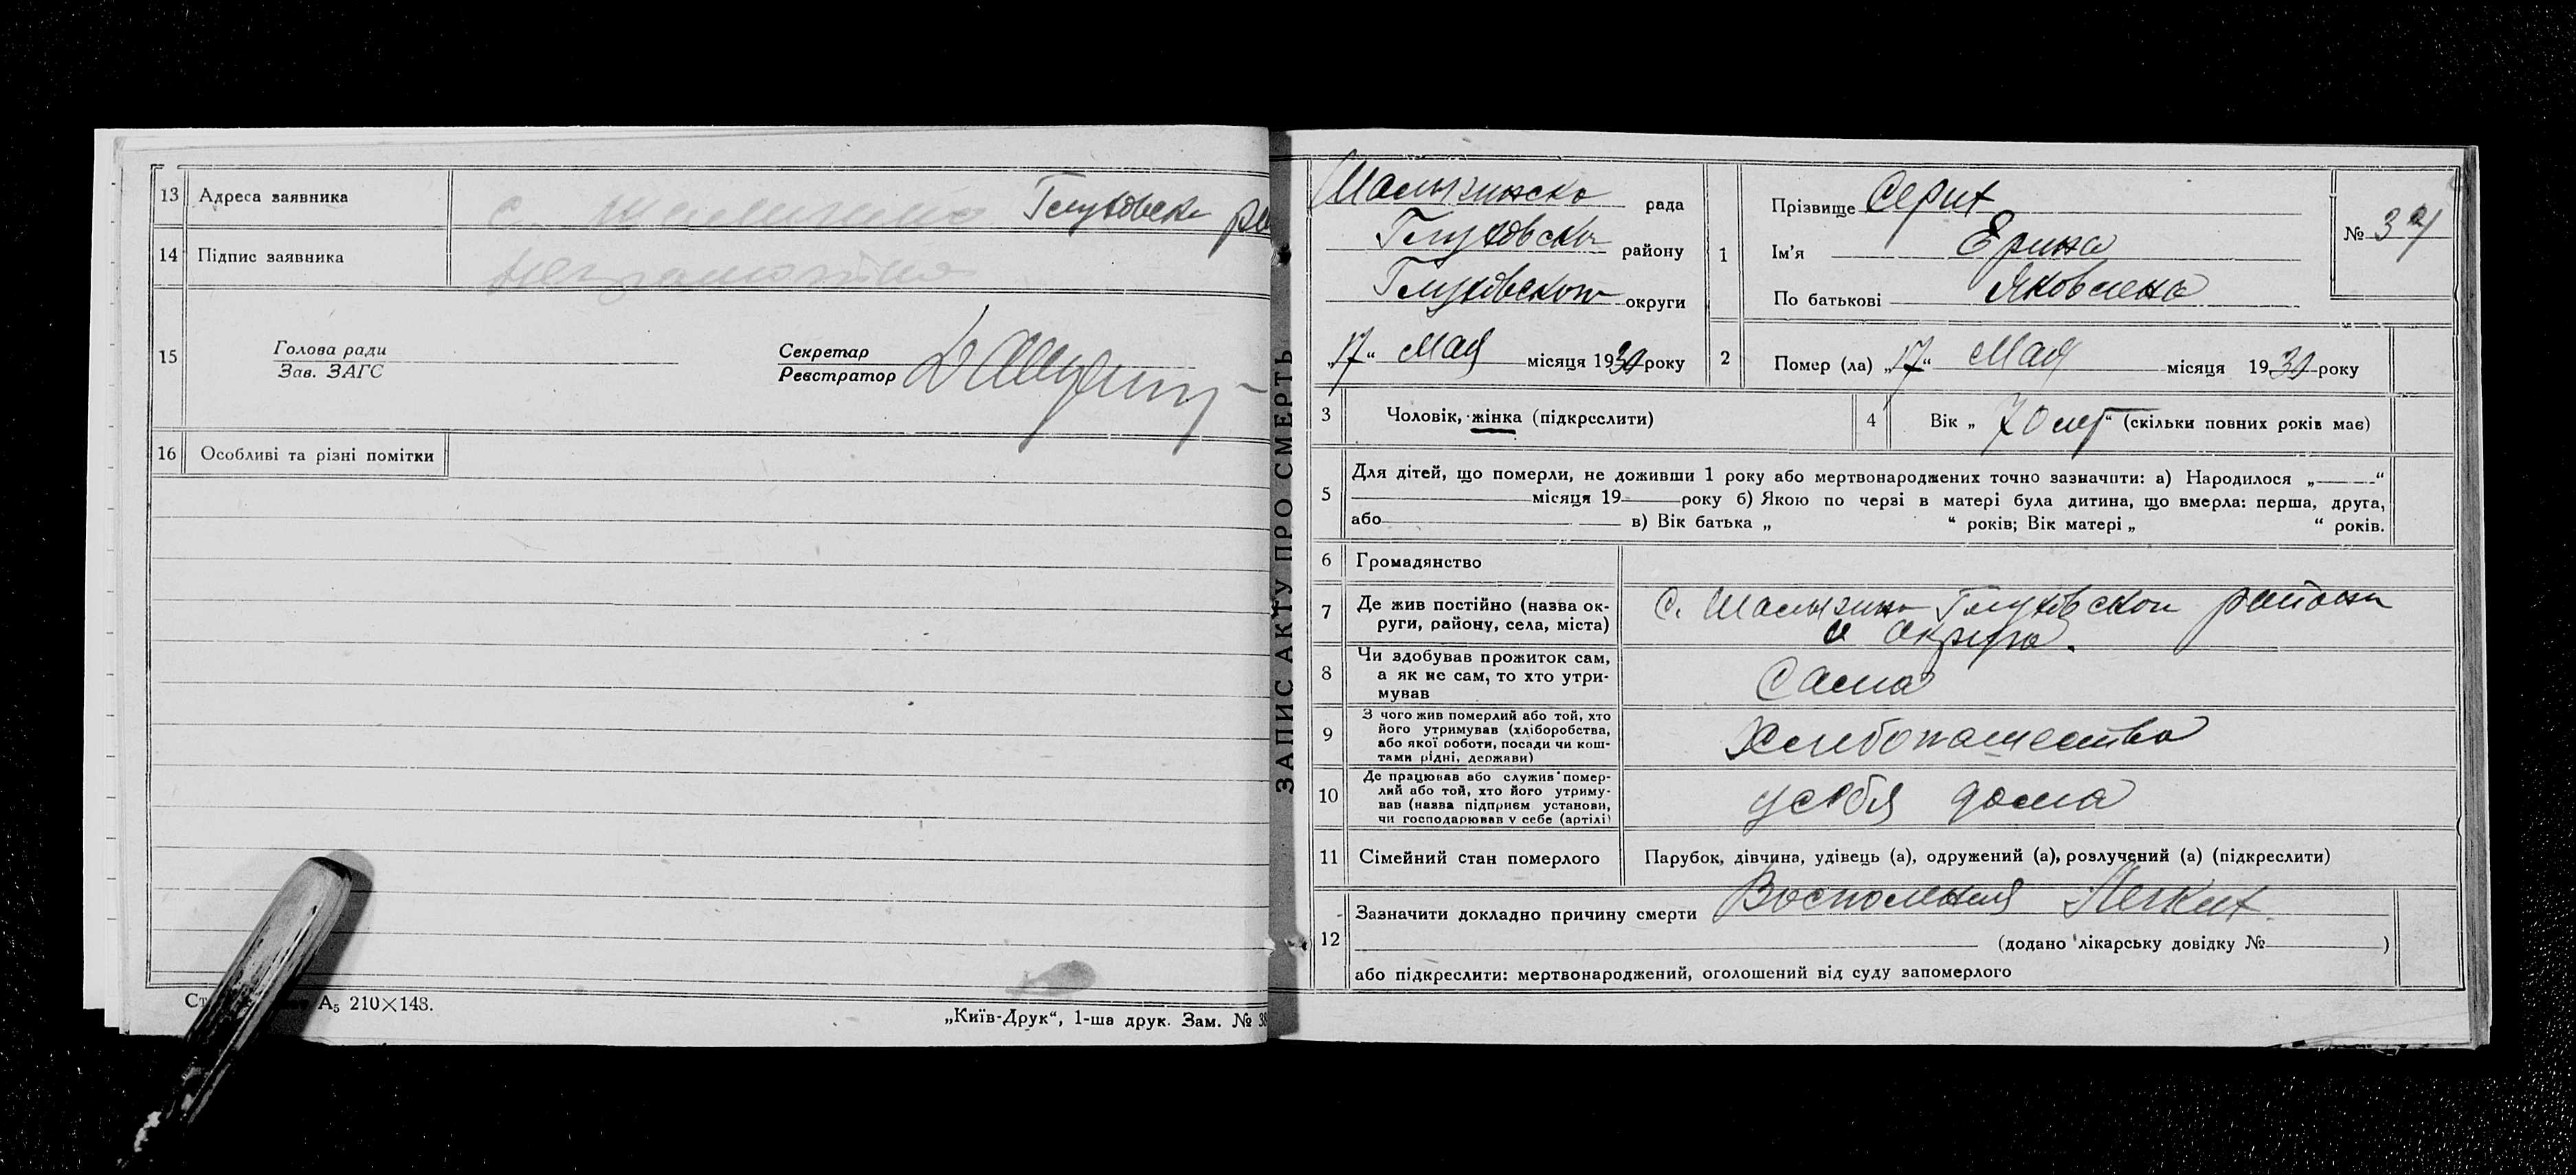 13 Адреса заявника Глуховск
14 Підпис заявника неграмотна
15 Голова ради
Зав. ЗАГС
Секретар
Реєстратор
16 Особливі та різні помітки
А₅ 210×148.
„Київ-Друк“, 1-ша друк. Зам. №
ЗАПИС АКТУ ПРО СМЕРТЬ
Шалыгинска рада
Глуховска району
Глуховской округи
„17“ Мая місяця 1930 року
1 Прізвище Серих
Ім'я Ерина
По батькові Яковлена
№
2 Помер (ла) „17“ Мая місяця 1930 року
3 Чоловік, жінка (підкреслити)
4 Вік „70 лет“ (скільки повних років має)
5 Для дітей, що померли, не доживши 1 року або мертвонароджених точно зазначити: а) Народилося „ “
місяця 19 року б) Якою по черзі в матері була дитина, що вмерла: перша, друга,
або в) Вік батька „ “ років; Вік матері „ “ років.
6 Громадянство
7 Де жив постійно (назва ок-
руги, району, села, міста)
с. Шалыгино Глуховской района
и округа.
8 Чи здобував прожиток сам,
а як не сам, то хто утри-
мував
Сама
9 З чого жив померлий або той, хто
його утримував (хліборобства,
або якої роботи, посади чи кош-
тами рідні, держави)
Хлебопашества
10 Де працював або служив помер-
лий або той, хто його утриму-
вав (назва підприєм установи,
чи господарював у себе (артілі)
у себя дома
11 Сімейний стан померлого Парубок, дівчина, удівець (а), одружений (а), розлучений (а) (підкреслити)
12 Зазначити докладно причину смерти Воспаления Легких.
(додано лікарську довідку № )
або підкреслити: мертвонароджений, оголошений від суду запомерлого